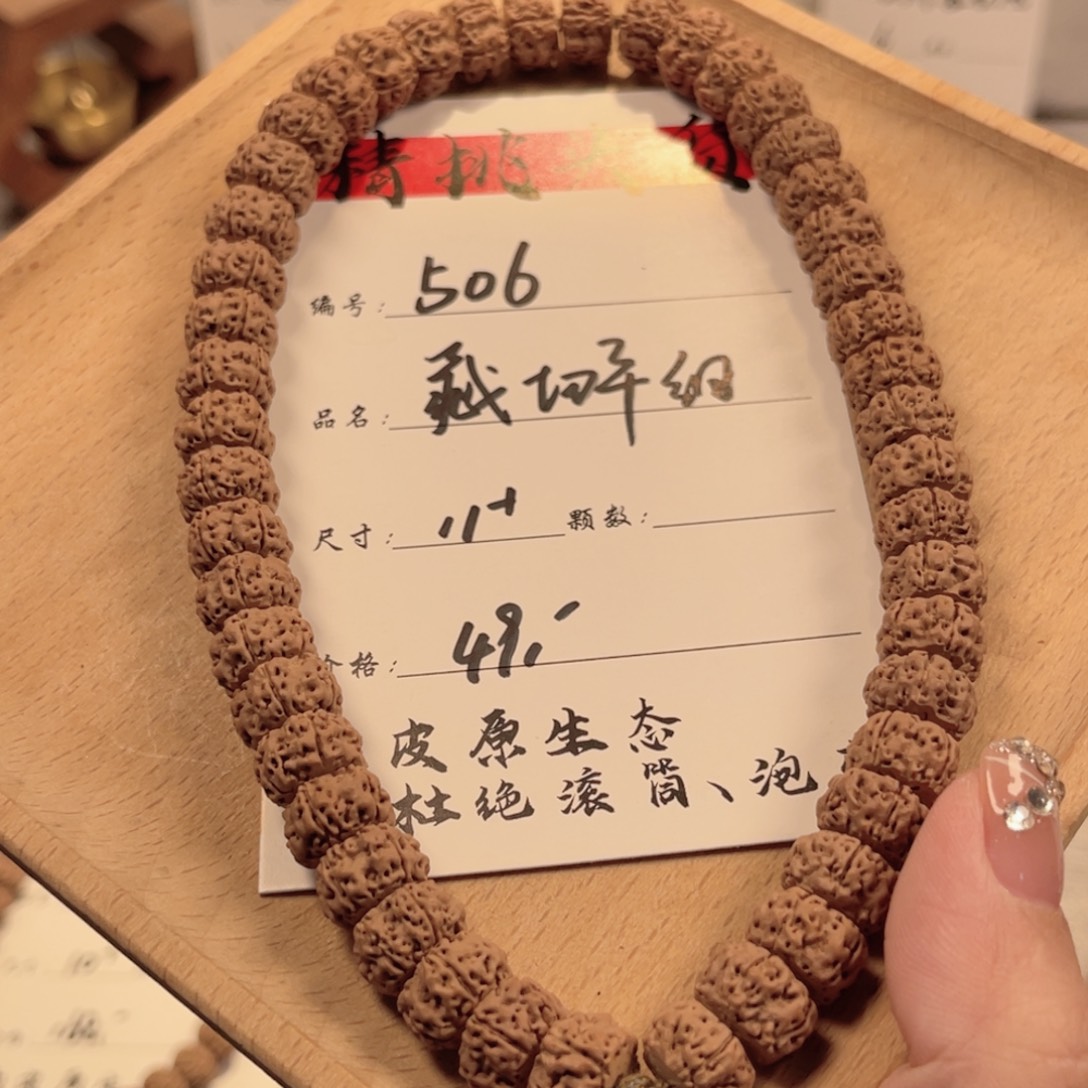 精挑
编号: 506
品名: 藏切平纹
尺寸: 11+ 颗数:
价格: 49.-
皮原生态
杜绝滚筒、泡